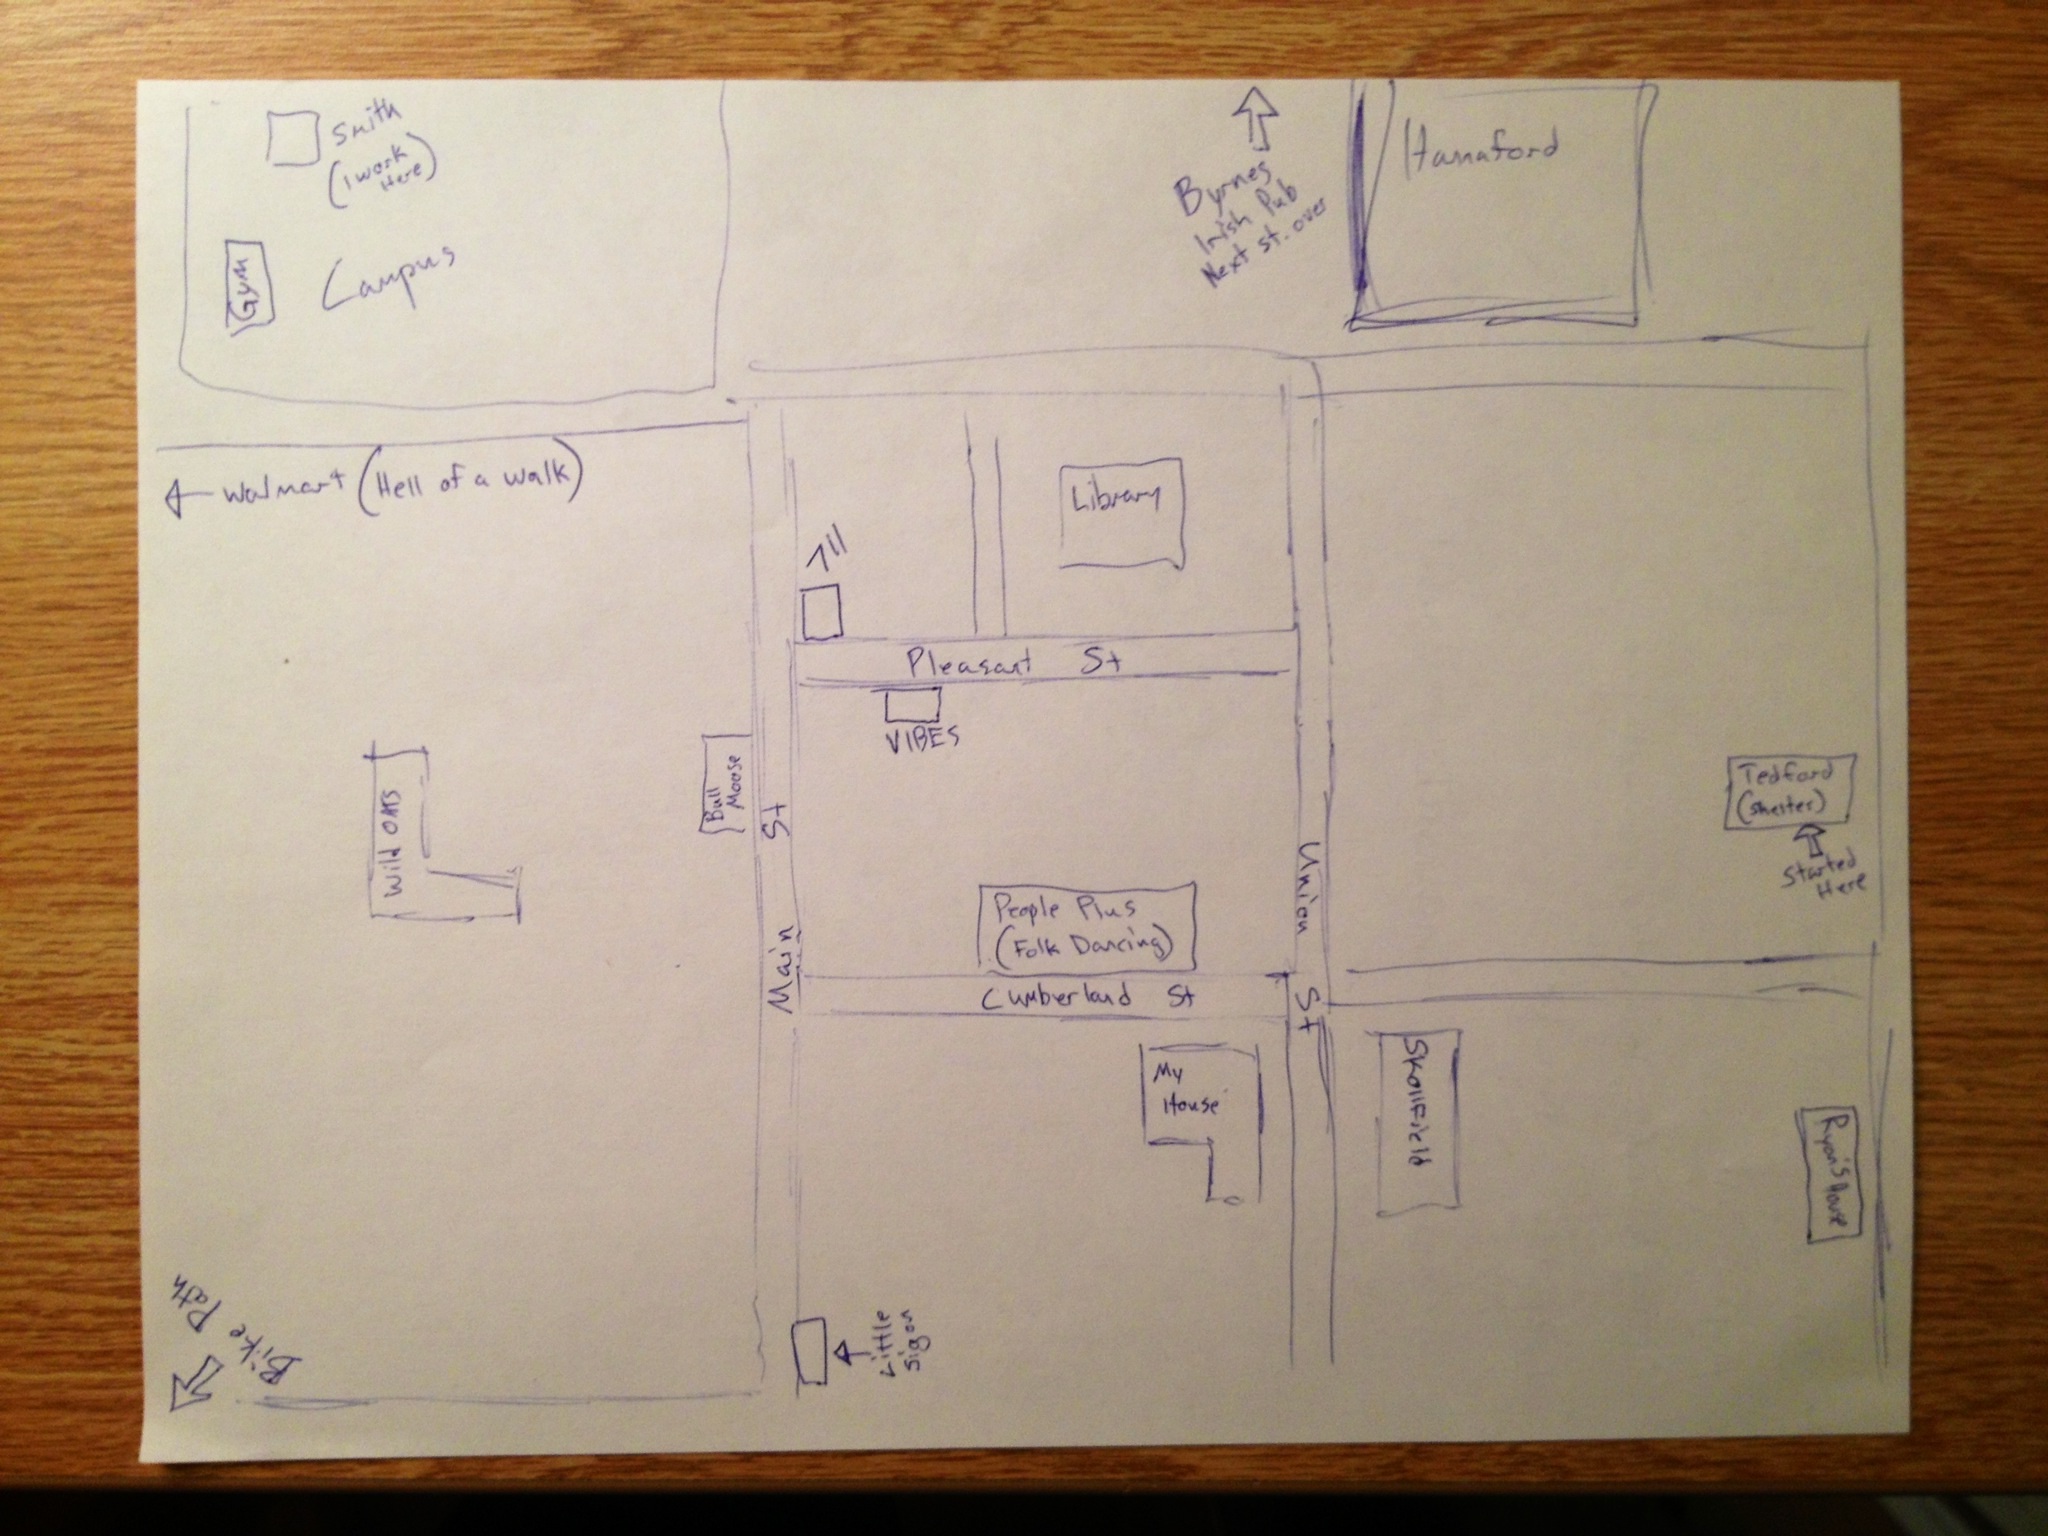 Smith
(I work
Here)
Gym
Campus
Byrnes
Irish Pub
Next st. over
Hannaford
← Walmart (Hell of a walk)
711
Library
Pleasant St
VIBES
Bull
Moose
Wild OATS
Main St
Union St
Tedford
(Shelter)
Started
Here
People Plus
(Folk Dancing)
Cumberland St
My
House
Skollfield
Ryan's House
Little
Sigon
Bike Path